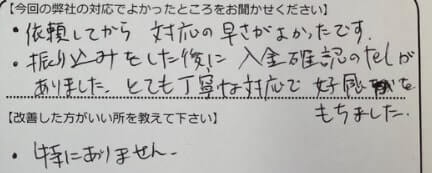 【今回の弊社の対応でよかったところをお聞かせください】
・依頼してから 対応の早さがよかったです.
・振り込みをした後に 入金確認のtelが
ありました. とても丁寧な対応で 好感を
もちました.
【改善した方がいい所を教えて下さい】
・特にありません.